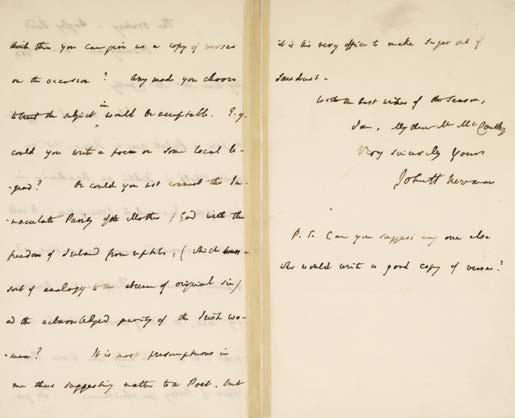 think then you can give us a copy of verses
on the occasion? Any mode you choose
to treat the subject in would be acceptable. E.g.
could you write a poem on some local le-
gend? Or could you not connect the Im-
maculate Purity of the Mother of God with the
freedom of Ireland from reptiles, (which has a
sort of analogy to the absence of original sin)
and the acknowledged purity of the Irish wo-
men? It is most presumptuous in
me thus suggesting matter to a Poet. but
it is his very office to make sugar out of
sawdust.
With the best wishes of the Season,
I am, My dear Mr McCarthy
Very sincerely Yours
John H Newman
P.S. Can you suggest any one else
who would write a good copy of verses?